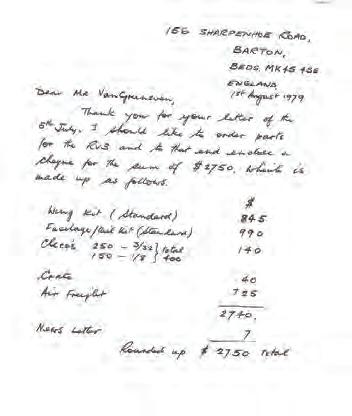 156 SHARPENHOE ROAD,
BARTON,
BEDS. MK45 4SE
ENGLAND
1st August 1979
Dear Mr VanGrunsven,
Thank you for your letter of the
5th July. I should like to order parts
for the RV3 and to that end enclose a
cheque for the sum of $2750. which is
made up as follows.
$
Wing Kit (Standard) 845
Fuselage/Tail Kit (Standard) 990
250 - 3/32 } total 140
150 - 1/8 } 400
Crate 40
Air Freight 725
2740.
News Letter 7
Rounded up $ 2750 total